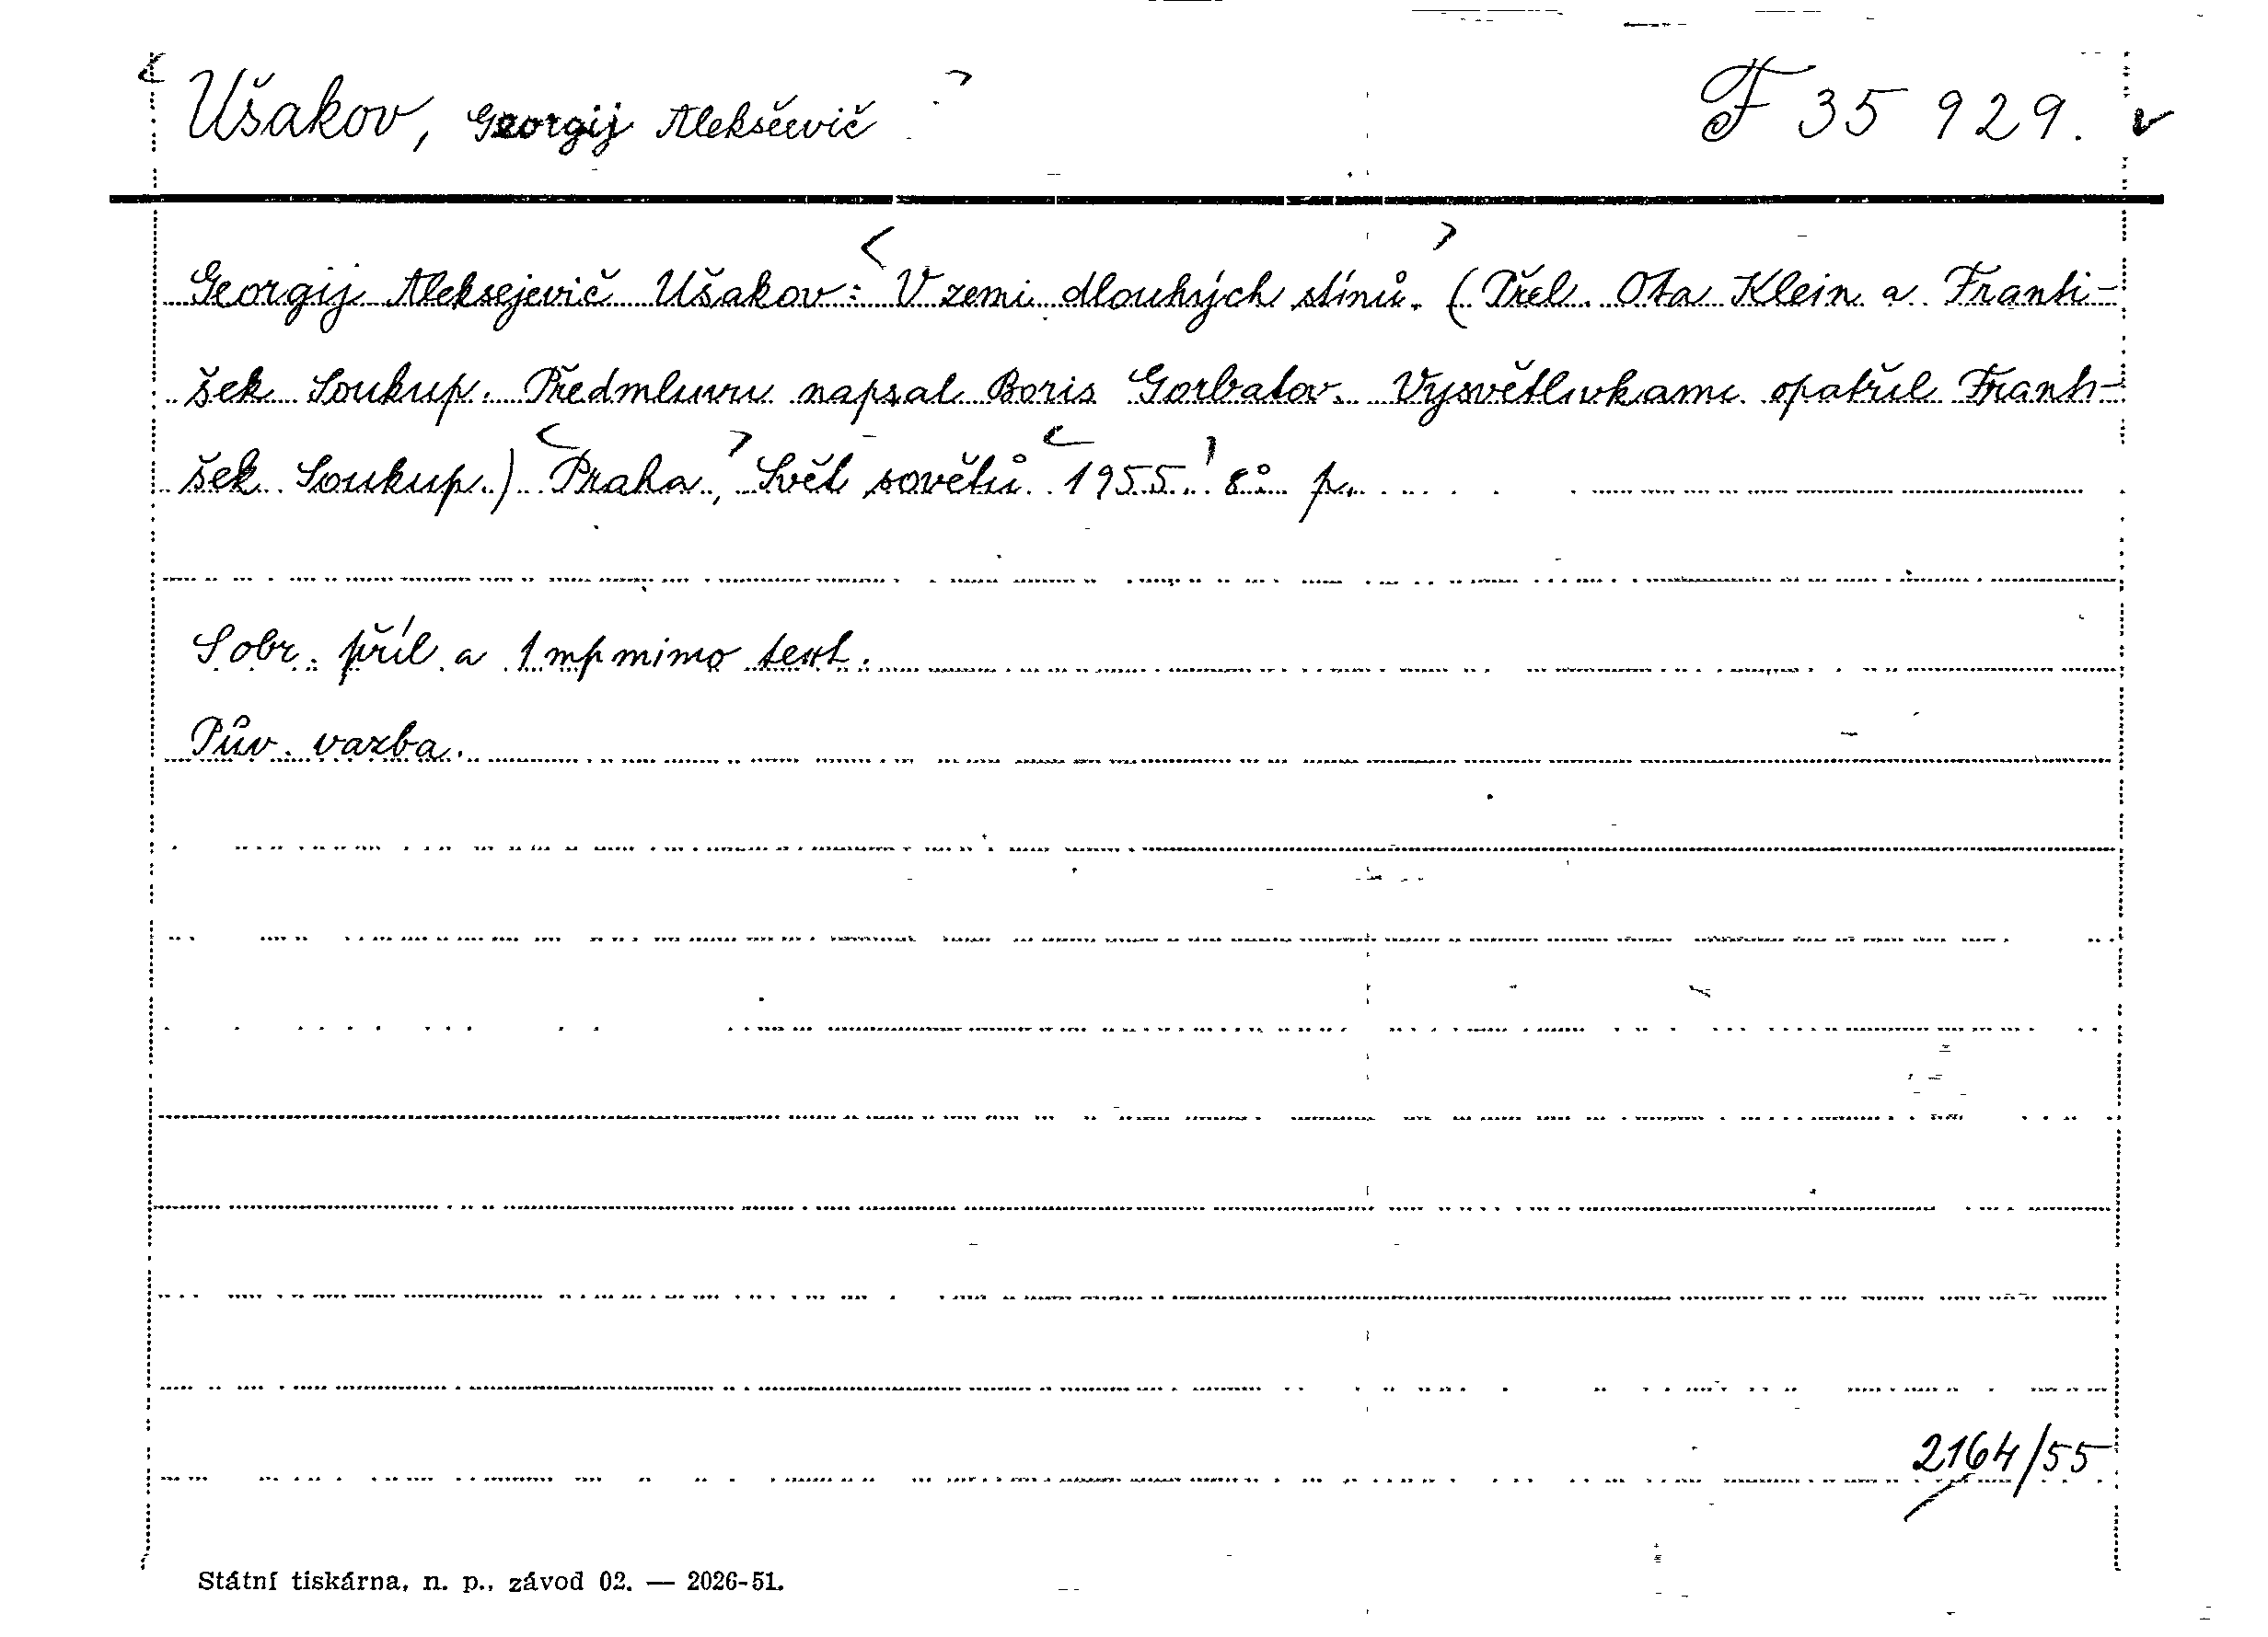 Ušakov, Georgij Aleksěevič F 35 929. v
Georgij Aleksejevič Ušakov: V zemi dlouhých stínů. (Přel. Ota Klein a Franti-
šek Soukup. Předmluvu napsal Boris Gorbatov. Vysvětlivkami opatřil Franti-
šek Soukup.) Praha, Svět sovětů 1955. 8° p.
S obr. příl. a 1 mp mimo text.
Pův. vazba.
2164/55
Státní tiskárna, n. p., závod 02. — 2026-51.